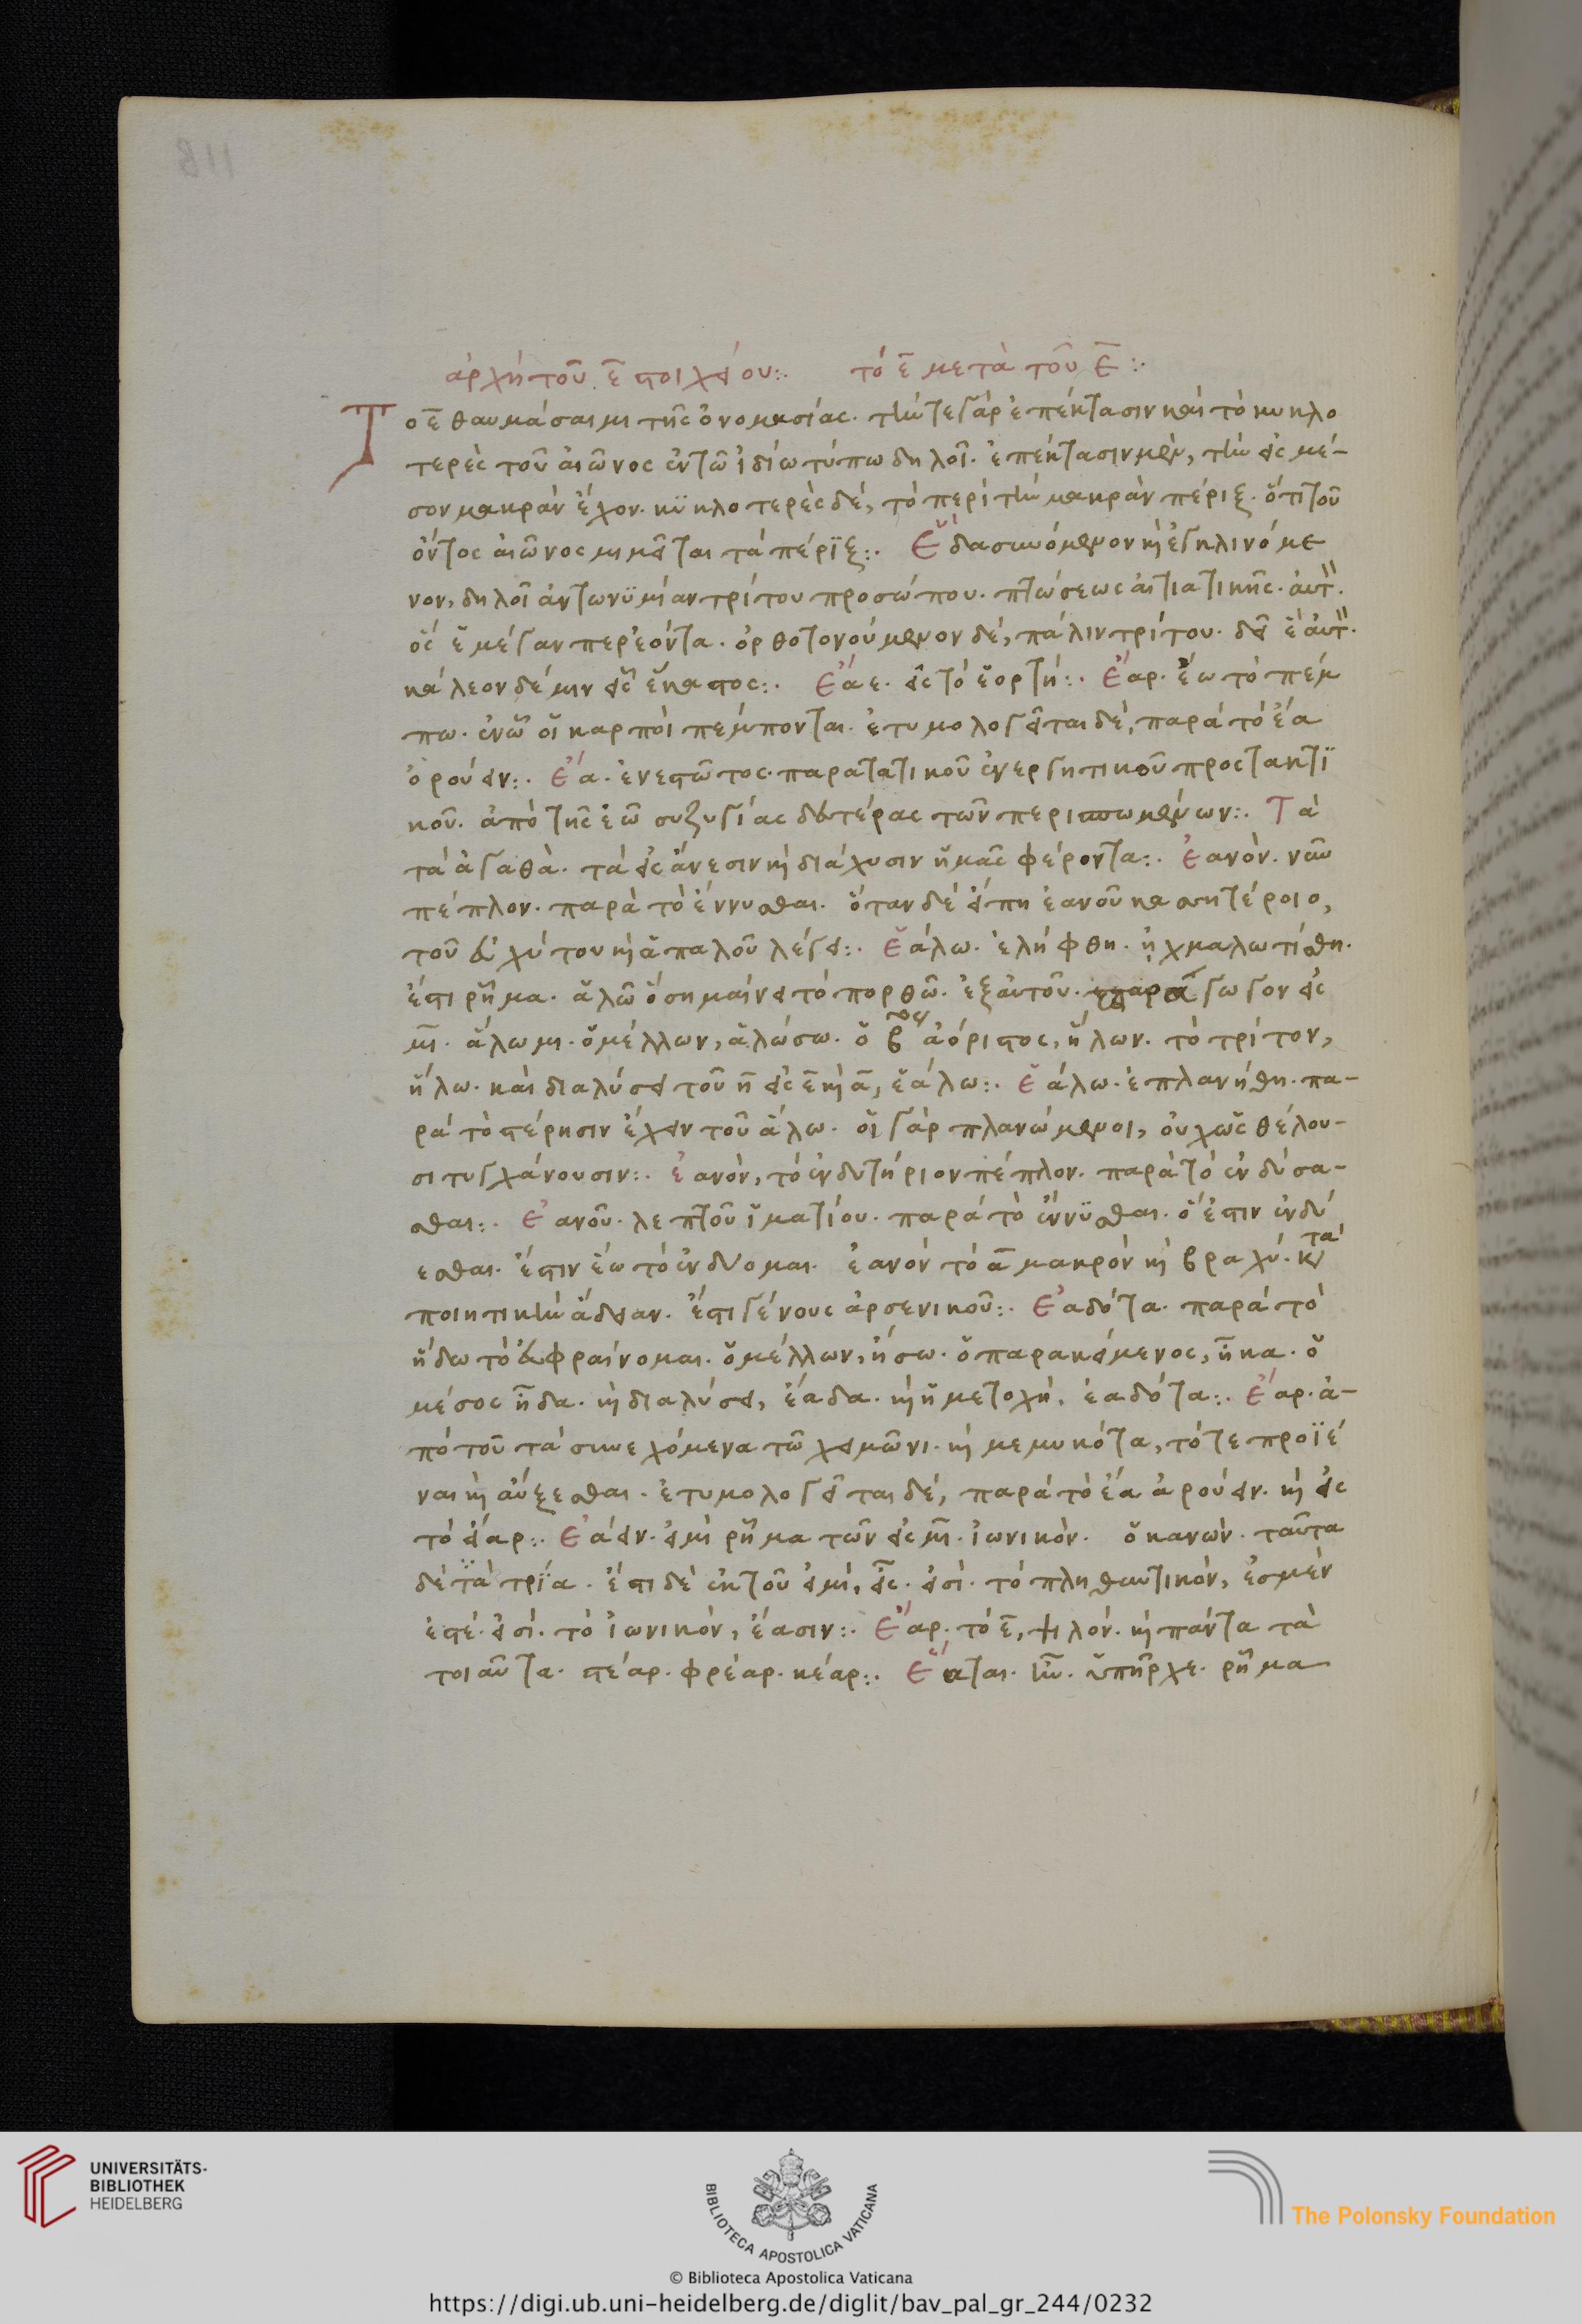 ἀρχὴ τοῦ ε̄ στοιχείου:. τό ε̄ μετὰ τοῦ ε̄:.
Το ε̄ θαυμάσαιμι τῆς ὀνομασίας. τήν τε γάρ ἐπέκτασιν καὶ τὸ κυκλο
τερὲς τοῦ ἀιῶνος ἐν τῶ ἰδίω τύπω δηλοῖ. ἐπέκτασιν μέν, τὴν εἰς μέ-
σον μακρὰν ἔχον. κϋκλοτερὲς δέ, τὸ περὶ τὴν μακρὰν πέριξ. ὅτι τοῦ
ὄντος ἀιῶνος μιμεῖται τὰ πέρϊξ:. Ἓ δασυνόμενον κὶ ἐγκλινόμε
νον, δηλοῖ ἀντωνϋμίαν τρίτου προσώπου. πτώσεως ἀιτιατικῆς. ἀυτ.
ὅς ἓ μέγαν περ ἐόντα. ὀρθοτονούμενον δέ, πάλιν τρίτου. δεῖ ἓ ἀυτ.
κάλεον δέ μιν εἰς ἓ ἕκαστος:. Ἔαε. εἰς τὸ ἑορτή:. Ἔαρ. ἕω τὸ πέμ
πω. ἐν ὧ οἱ καρποὶ πέμπονται. ἐτυμολογεῖται δέ, παρά τό ἔα
ὀρούειν:. Ἔα. ἐνεστῶτος. παρατατικοῦ ἐνεργητικοῦ προστακτϊ
κοῦ. ἀπὸ τῆς ἐῶ συζυγίας δευτέρας τῶν περισπωμένων:. Τὰ
τὰ ἀγαθὰ. τὰ εἰς ἄνεσιν κὶ διάχυσιν ἡμᾶς φέροντα:. Ἑανὸν. νῦν
πέπλον. παρὰ τὸ ἕννυσθαι. ὅταν δέ εἴπη ἑανοῦ κασσιτέροιο,
τοῦ εὐχύτου κὶ ἁπαλοῦ λέγει:. Ἑάλω. ἐλήφθη. ἠχμαλωτίσθη.
ἔστι ρῆμα. ἁλῶ ὃ σημαίνει τὸ πορθῶ. ἐξ ἀυτοῦ. παράγωγον εἰς
μ̄ῑ. ἅλωμι. ὁ μέλλων, ἁλώσω. ὁ β̄ ἀόριστος, ἥλων. τὸ τρίτον,
ἥλω. καὶ διαλύσει τοῦ η̄ εἰς ε̄ κὶ ᾱ, ἑάλω:. Ἑάλω. ἐπλανήθη. πα-
ρὰ τὸ στέρησιν ἔχειν τοῦ ἅλω. οἱ γὰρ πλανώμενοι, ὀυχ ὡς θέλου-
σι τυγχάνουσιν:. ἑανὸν, τὸ ἐνδυτήριον πέπλον. παρὰ τό ἐνδύσα-
σθαι:. Ἑανοῦ. λεπτοῦ ἱματίου. παρά τὸ ἕννϋσθαι. ὅ ἐστιν ἐνδύ
εσθαι. ἔστιν ἕω τὸ ἐνδύομαι. ἑανόν τό ᾱ μακρὸν κὶ βραχύ. κατὰ
ποιητικὴν ἄδειαν. ἔστι γένους ἀρσενικοῦ:. Ἑαδότα. παρά τὸ
ἥδω τὸ ἐυφραίνομαι. ὁ μέλλων, ἥσω. ὁ παρακείμενος, ἧκα. ὁ
μέσος ἧδα. κὶ διαλύσει, ἕαδα. κὶ ἡ μετοχή, ἑαδότα:. Ἔαρ. ἀ-
πὸ τοῦ τὰ συνεχόμενα τῶ χειμῶνι. κὶ μεμυκότα, τότε προϊέ
ναι κὶ ἀύξεσθαι. ἐτυμολογεῖται δέ, παρὰ τὸ ἔα ἀρούειν. κὶ εἰς
τό εἴαρ:. Ἐάειν. εἰμὶ ρῆμα τῶν εἰς μ̄ῑ. ἰωνικὸν. ὁ κανὼν. ταῦτα
δὲ τὰ τρία. ἔστι δὲ ἐκ τοῦ εἰμὶ, εἶς. εἰσὶ. τὸ πληθυντικὸν, ἐσμὲν
ἐστέ. εἰσί. τὸ ἰωνικὸν, ἔασιν:. Ἔαρ. τὸ ε̄, ψιλόν. κὶ πάντα τὰ
τοιαῦτα. στέαρ. φρέαρ. κέαρ:. Ἕαται. ἦν. ὑπῆρχε. ρῆμα
UNIVERSITÄTS-
BIBLIOTHEK
HEIDELBERG
BIBLIOTECA APOSTOLICA VATICANA
The Polonsky Foundation
© Biblioteca Apostolica Vaticana
https://digi.ub.uni-heidelberg.de/diglit/bav_pal_gr_244/0232